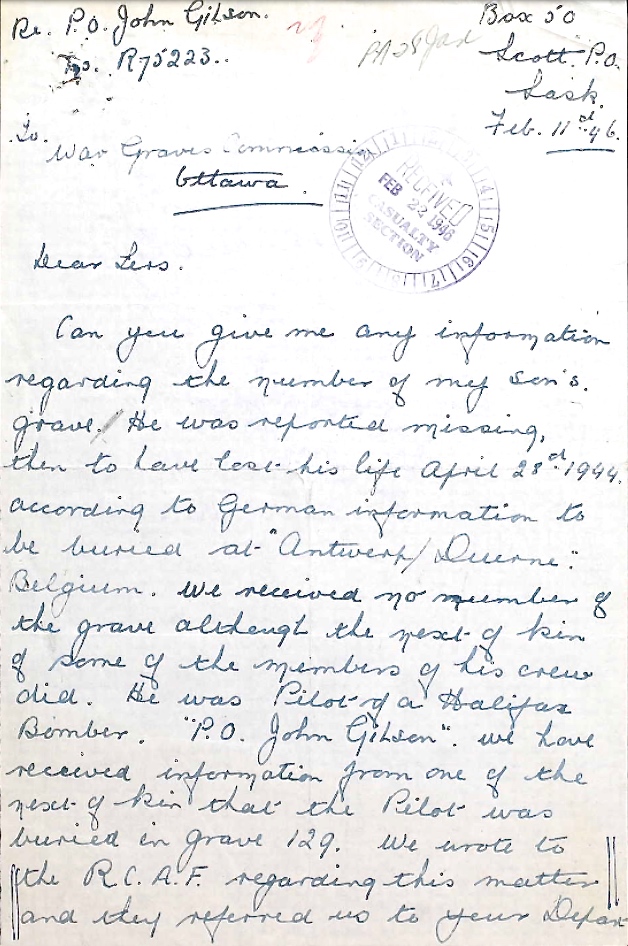 Re. P.O. John Gilson.
No. R75223..
PA28Jax
Box 50
Scott. P.O.
Sask.
Feb. 11th 46.
To.
War Graves Commission
Ottawa.
RECEIVED
FEB 22 1946
CASUALTY
SECTION
Dear Sirs.
Can you give me any information
regarding the number of my son's.
grave/ He was reported missing,
then to have lost his life April 28th 1944.
according to German information to
be buried at "Antwerp/Duerne".
Belgium. We received no number of
the grave although the next of kin
of some of the members of his crew
did. He was Pilot of a Halifax
Bomber. "P.O. John Gilson". We have
received information from one of the
next of kin that the Pilot was
buried in grave 129. We wrote to
the R.C.A.F. regarding this matter
and they referred us to your Depart